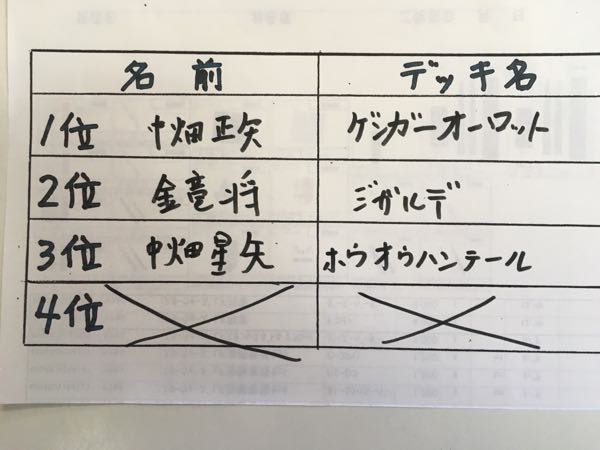 名前 デッキ名
1位 中畑正矢 ゲンガーオーロット
2位 金竜将 ジガルデ
3位 中畑星矢 ホウオウハンテール
4位